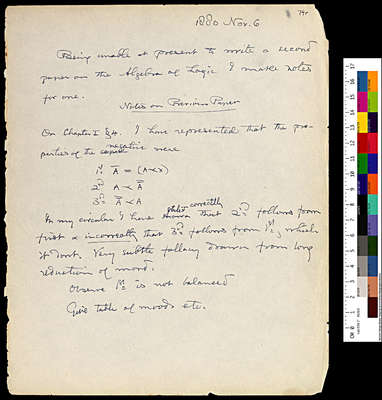 1880 Nov. 6
Being unable at present to write a second
paper on the Algebra of Logic I make notes
for one.
Notes on Previous Paper
On Chapter I §4. I have represented that the pro-
perties of the negative were
1º Ā = (A ⤙ x)
2º A ⤙ A̿
3º A̿ ⤙ A
In my circular I have stated correctly that 2º follows from
first & incorrectly that 3º follows from 1º, which
it dont. Very subtle fallacy drawn from long
reduction of mood.
Observe 1º is not balanced
Give table of moods etc.